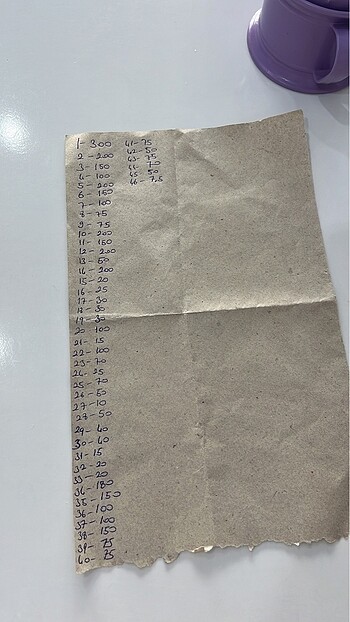 1- 300
2- 200
3- 150
4- 100
5- 200
6- 150
7- 100
8- 75
9- 75
10- 200
11- 150
12- 200
13- 50
14- 200
15- 20
16- 25
17- 30
18- 30
19- 30
20- 100
21- 15
22- 100
23- 70
24- 25
25- 70
26- 50
27- 10
28- 50
29- 40
30- 40
31- 15
32- 20
33- 20
34- 180
35- 150
36- 100
37- 100
38- 150
39- 75
40- 75
41- 75
42- 50
43- 75
44- 70
45 50
46- 7,5